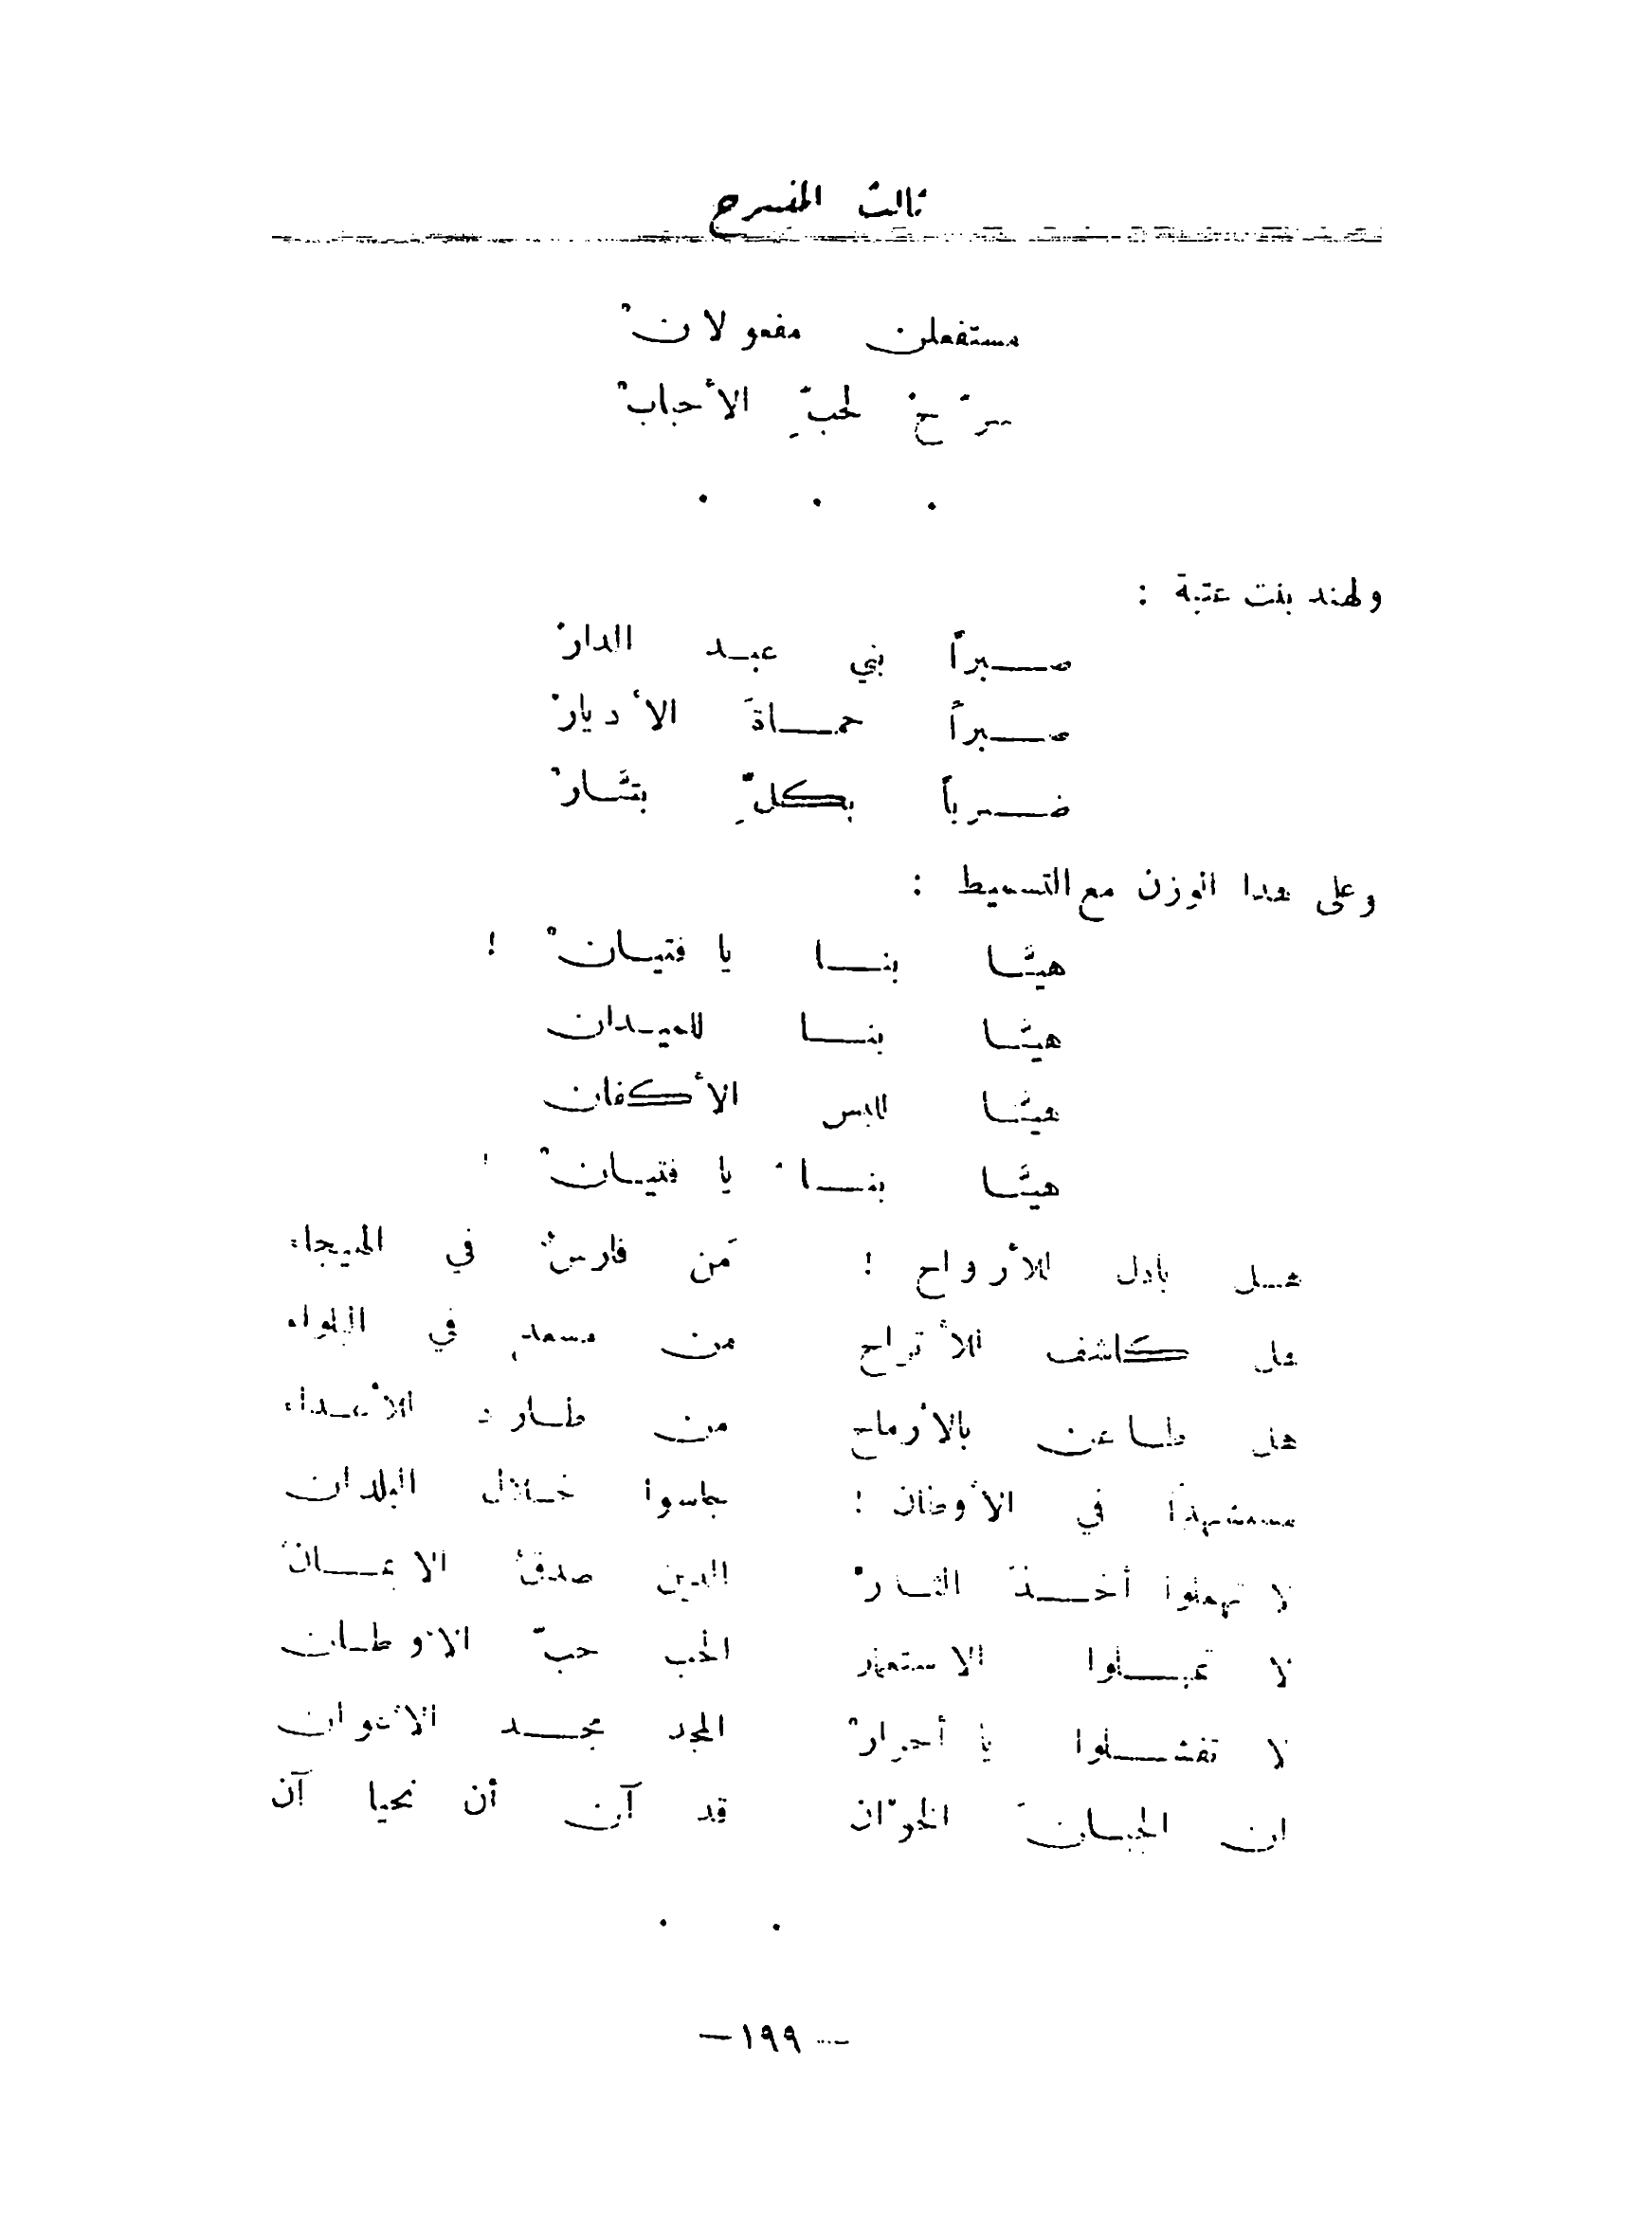 ثالث المنسرح
مستفعلن مفعولانْ
سرّح لحبِّ الأحبابْ
ولهند بنت عتبة :
صبراً بني عبد الدارْ
صبراً حماةَ الأديارْ
ضرباً بكلِّ بتَّارْ
وعلى هذا الوزن مع التسميط :
هيَّا بنا يا فتيانْ !
هيَّا بنا للميدان
هيَّا للبس الأكفان
هيَّا بنا يا فتيانْ !
هل باذل للأرواح ! مَن فارسٌ في الهيجاء
هل كاشف للأتراح من مسعدٍ في البلواء
هل طاعن بالأرماح من طارد للأعداء
مستشهداً في الأوطان ! جاسوا خلال البلدان
لا تهملوا أخذَ الثارْ الدين صدقُ الايمانْ
لا تقبلوا الاستعمار الحب حبّ الأوطان
لا تفشلوا يا أحرارْ المجد مجد الأعوان
ان الجبانَ الخوّان قد آن أن نحيا آن
—١٩٩—